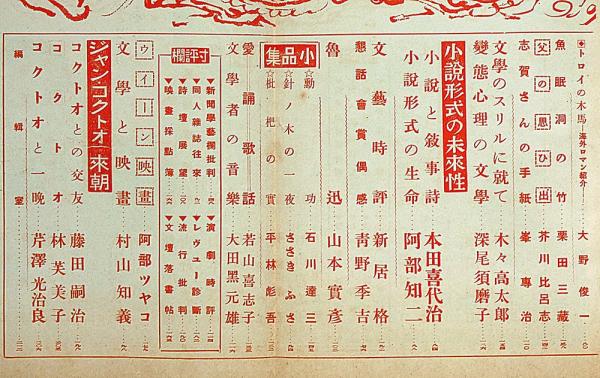 ◆トロイの木馬―海外ロマン紹介― 大野俊一
魚眠洞の竹 栗田三藏
父の思ひ出 芥川比呂志
志賀さんの手紙 峯專治
文學のスリルに就て 木々高太郎
變態心理の文學 深尾須磨子
小說形式の未來性
小說と敍事詩 本田喜代治
小說形式の生命 阿部知二
文藝時評 新居格
懇話會賞偶感 靑野季吉
魯迅 山本實彥
小品集
☆勳功 石川達三
☆針ノ木の一夜 ささきふさ
☆枇杷の實 平林彪吾
愛誦歌話 若山喜志子
文學者の音樂 大田黑元雄
寸評欄
▼新聞學藝欄批判
▼同人雜誌往來
▼詩壇展望
▼映畫採點簿
▼演劇時評
▼レヴュー診斷
▼流行批判
▼文壇落書帖
ウイーン映畫 阿部ツヤコ
文學と映畫 村山知義
ジャン・コクトオ來朝
コクトオとの交友 藤田嗣治
コクトオ 林芙美子
コクトオと一晚 芹澤光治良
編輯室